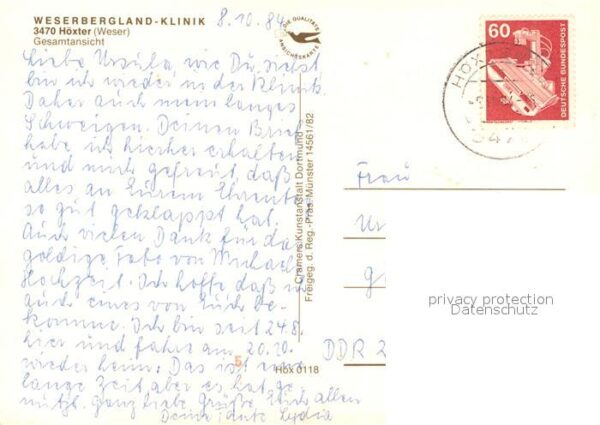 WESERBERGLAND-KLINIK
3470 Höxter (Weser)
Gesamtansicht
8.10.84
DIE QUALITÄTS
ANSICHTSKARTE
60
DEUTSCHE BUNDESPOST
HÖX
347
Liebe Ursula, wie Du siehst
bin ich wieder in der Klinik.
Daher auch mein langes
Schweigen. Deinen Brief
habe ich hierher erhalten
und mich gefreut, daß
alles an Eurem Ehrenta
so gut geklappt hat.
Auch vielen Dank für da
goldige Foto von Michael
Hochzeit. Ich hoffe daß ich
auch eines von Euch be-
komme. Ich bin seit 24.8.
hier und fahre am 20.10.
wieder heim. Das ist eine
lange Zeit aber es hat ge-
nützt. Ganz liebe Grüße Euch allen
Deine Lydia
Cramers Kunstanstalt Dortmund
Freigeg. d. Reg.-Präs. Münster 14561/82
5
Höx 0118
Frau
Ur
g
DDR 2
privacy protection
Datenschutz